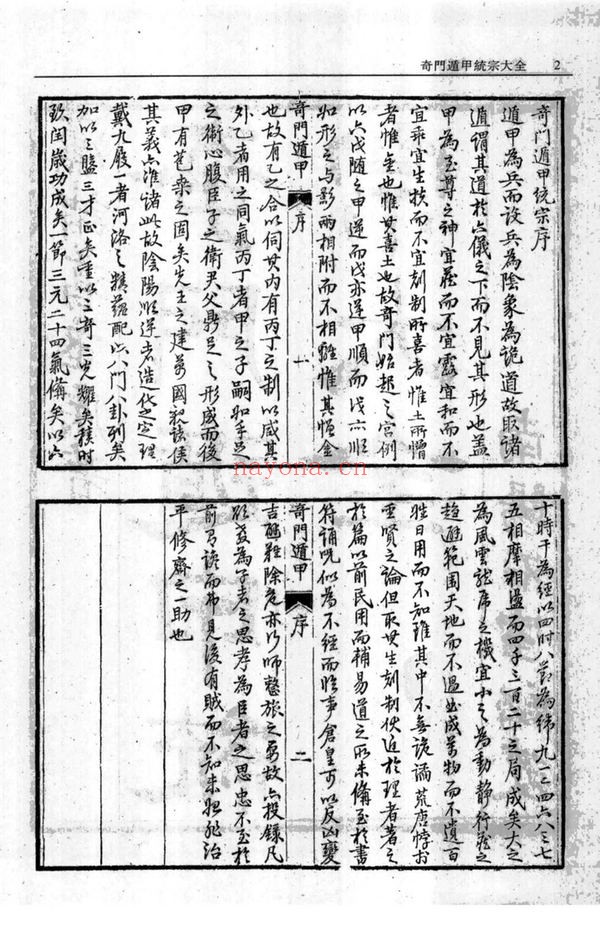 奇門遁甲統宗大全 2
奇門遁甲統宗序
遁甲為兵而設兵為陰象為詭道故取諸
遁謂其道於六儀之下而不見其形也蓋
甲為至尊之神宜藏而不宜露宜和而不
宜乖宜生扶而不宜刻制所喜者惟土所憎
者惟金也惟其喜土也故奇門始起之宮例
以六戊隨之甲逆而戊亦逆甲順而戊亦順
如形之与影兩相附而不相離惟其憎金
奇門遁甲 序 一
也故有乙之合以伺其內有丙丁之制以威其
外乙者用之同氣丙丁者甲之子嗣如手足
之衛心腹臣子之衛尹父鼎足之形成而後
甲有苞桑之固矣先王之建萬國親諸侯
其義亦准諸此故陰陽順逆者造化之定理
戴九履一者河洛之精蘊配以八門八卦列矣
加以三盤三才正矣重以三奇三光耀矣積時
致閏歲功成矣一節三元二十四氣備矣以六
十時干為經以四時八節為緯九一二四六八三七
五相摩相盪而四千三百二十之局成矣大之
為風雲龍虎之機宜小之為動靜行藏之
趨避範圍天地而不過曲成萬物而不遺百
姓日用而不知雖其中不無詭譎荒唐悖于
聖賢之論但取其生刻制伏近於理者著之
於篇以前民用而輔易道之所未備至於書
符誦呪似為不經而臨事倉皇可以反凶變
奇門遁甲 序 二
吉醮難除危亦行師整旅之要故亦投錄凡
欲教為子者之思孝為臣者之思忠不至於
前有讒而弗見後有賊而不知未始非治
平修齊之一助也
nayona.cn